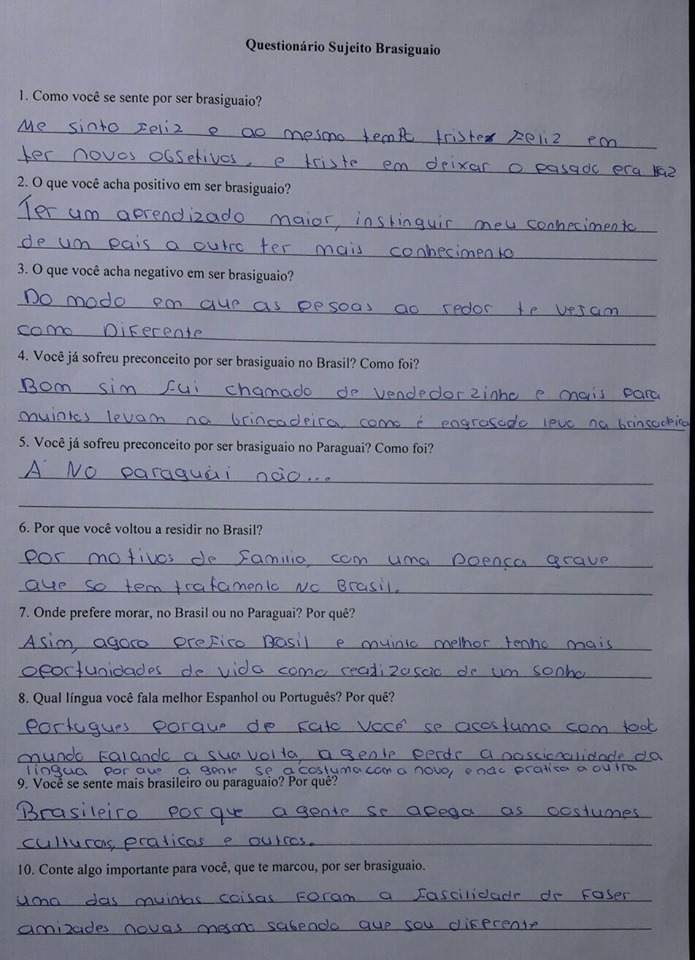 Questionário Sujeito Brasiguaio
1. Como você se sente por ser brasiguaio?
Me sinto Feliz e ao mesmo tempo triste Feliz em
ter novos obsetivos, e triste em deixar o pasado era
2. O que você acha positivo em ser brasiguaio?
Ter um aprendizado maior, instinguir meu conhecimento
de um pais a outro ter mais conhecimento
3. O que você acha negativo em ser brasiguaio?
Do modo em que as pesoas ao redor te vesam
como Diferente
4. Você já sofreu preconceito por ser brasiguaio no Brasil? Como foi?
Bom sim fui chamado de vendedorzinho e mais para
muintos levam na brincadeira, como é engrasado levo na brinscadeira
5. Você já sofreu preconceito por ser brasiguaio no Paraguai? Como foi?
A No paraguái não...
6. Por que você voltou a residir no Brasil?
Por motivos de Familia, com uma Doença grave
que so tem tratamento no Brasil.
7. Onde prefere morar, no Brasil ou no Paraguai? Por quê?
Asim, agora prefiro Brasil e muinto melhor tenho mais
oportunidades de vida como realizasão de um sonho
8. Qual língua você fala melhor Espanhol ou Português? Por quê?
Portugues porque de Fato Você se acostuma com todo
mundo Falando a sua volta, a gente perde a nascionalidade da
lingua por que a gente se acostuma com a novo, e não pratica a outra
9. Você se sente mais brasileiro ou paraguaio? Por quê?
Brasileiro por que a gente se apega as costumes
culturas, praticas e outros.
10. Conte algo importante para você, que te marcou, por ser brasiguaio.
uma das muintas coisas Foram a Fascilidade de Faser
amizades novas mesmo sabendo que sou diferente